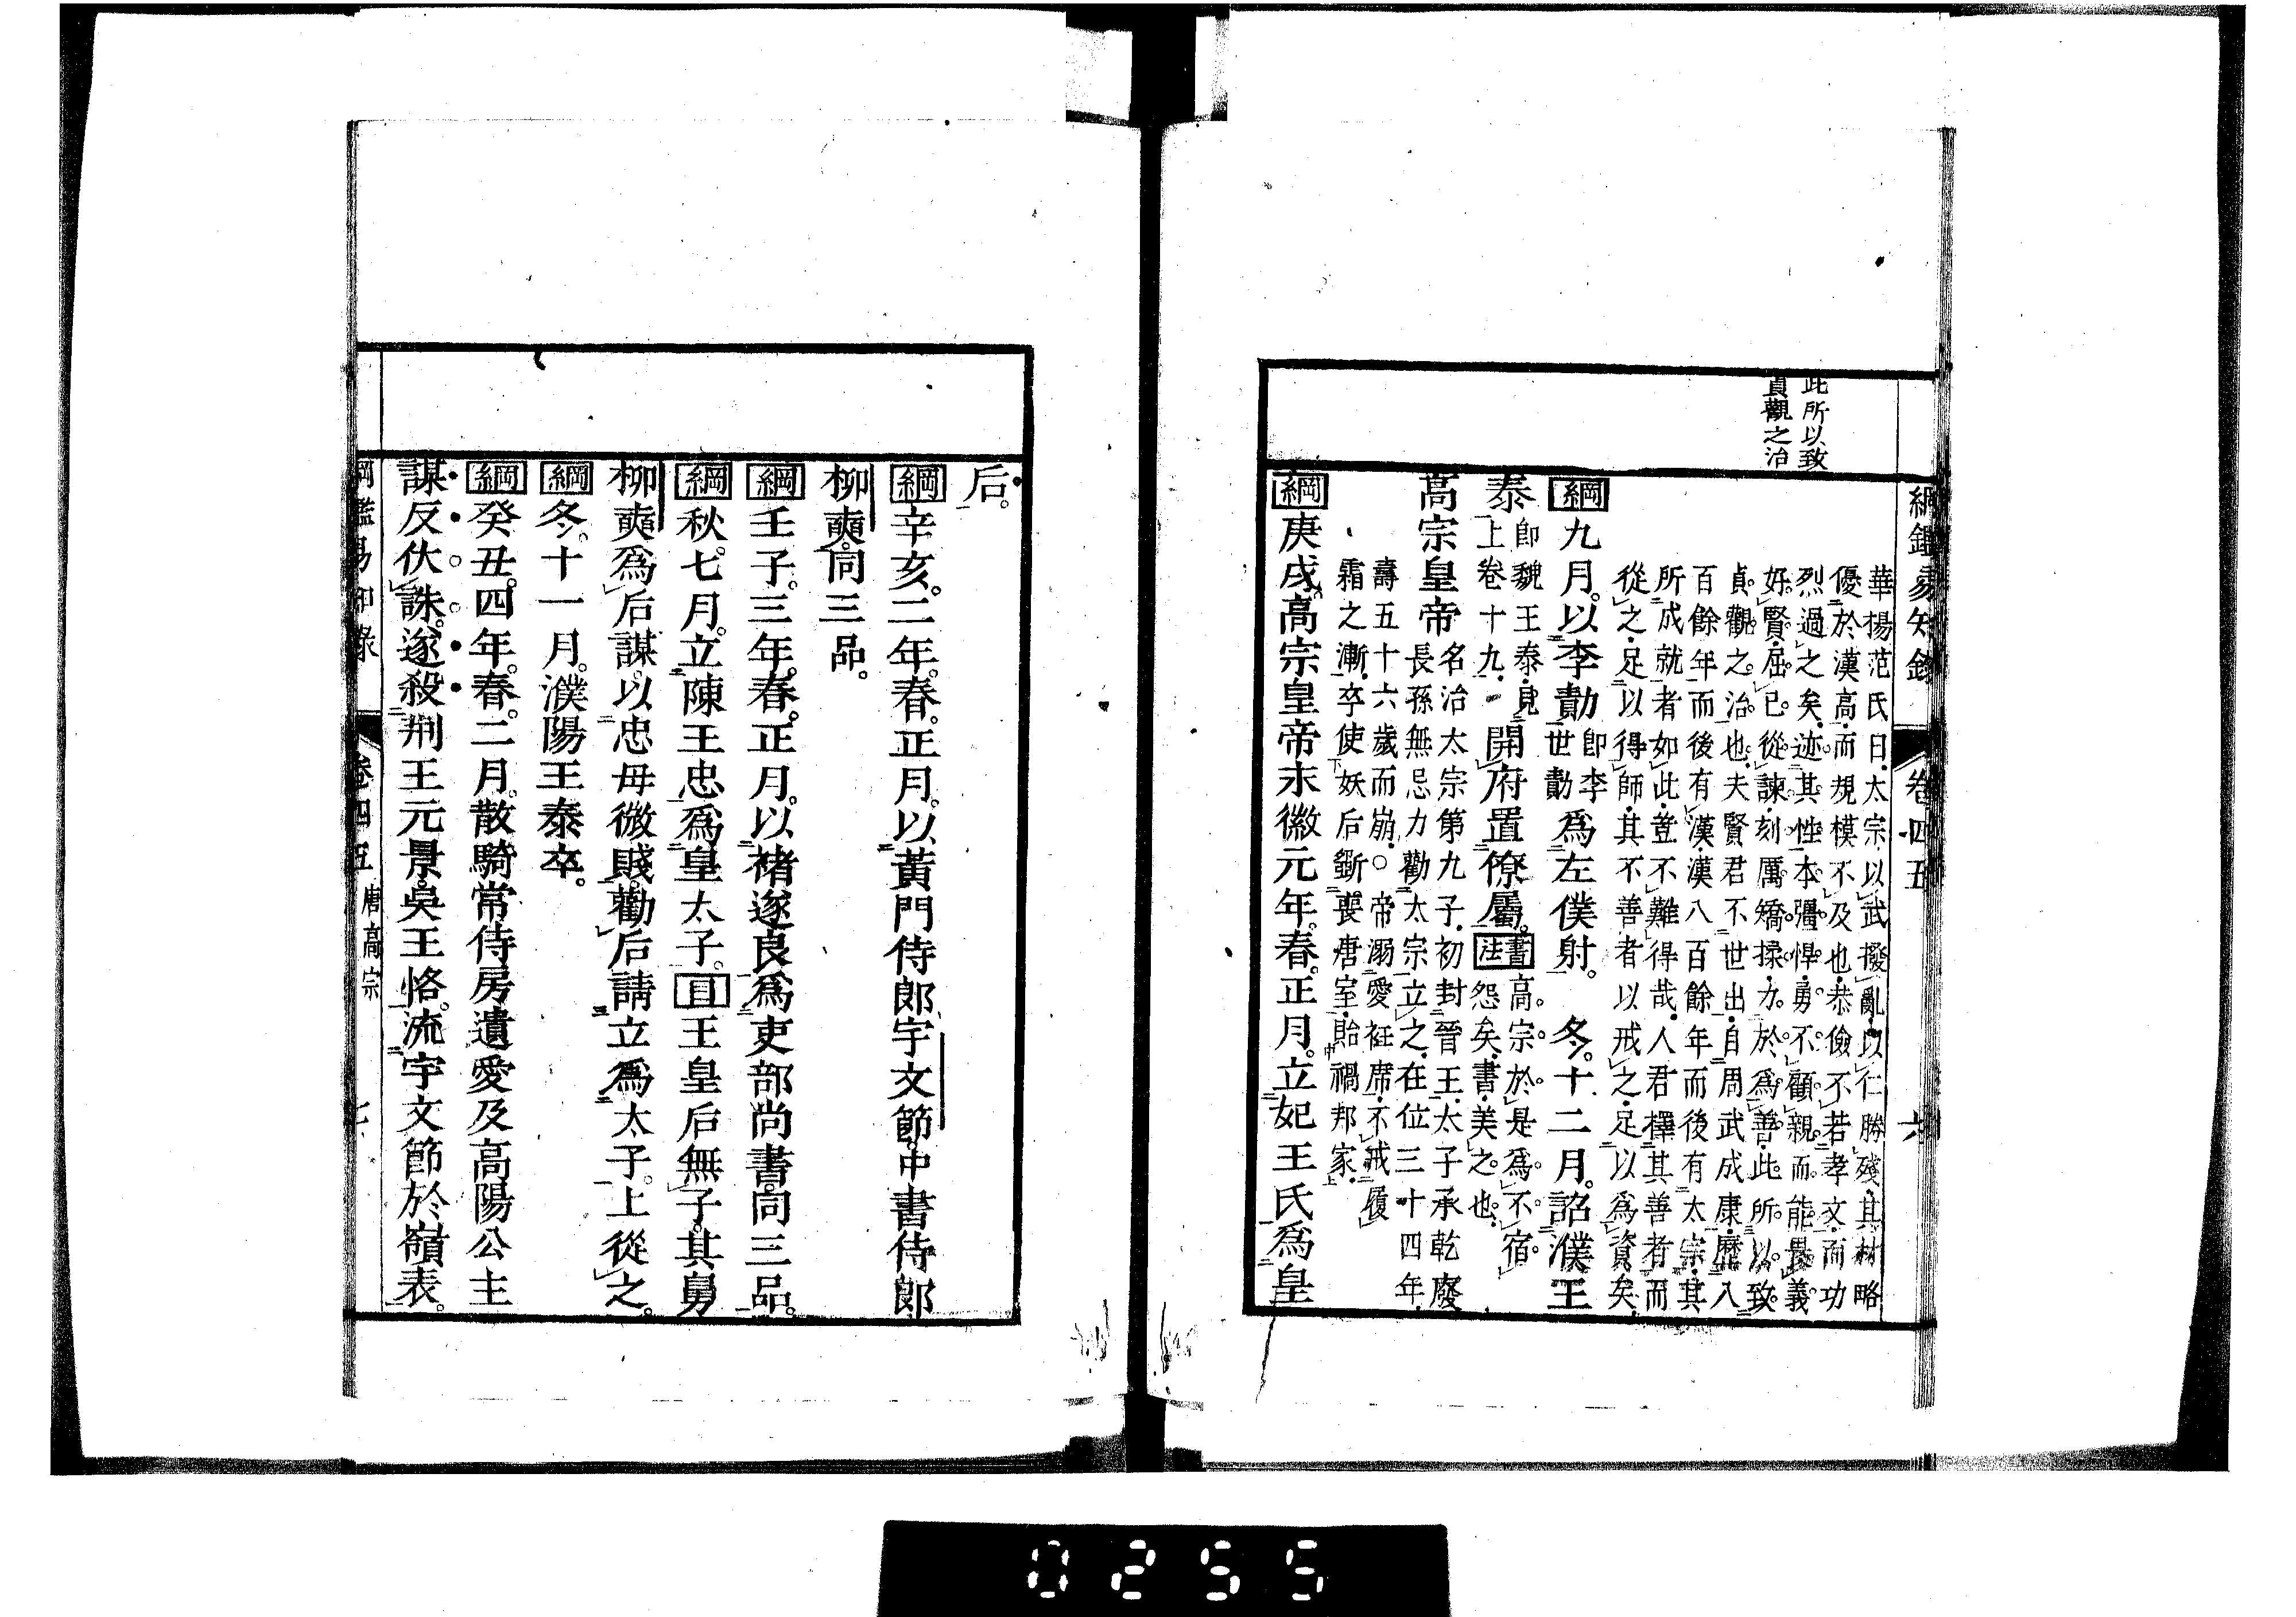 綱鑑易知錄　卷四五　六
此所以致
貞觀之治
華楊范氏曰太宗以武撥亂以仁勝殘其材略
優於漢高而規模不及也恭儉不若孝文而功
烈過之矣迹其性本彊悍勇不顧親而能畏義
好賢屈己從諫刻厲矯揉力於爲善此所以致
貞觀之治也夫賢君不世出自周武成康歷八
百餘年而後有漢漢八百餘年而後有太宗其
所成就者如此豈不難得哉人君擇其善者而
從之足以得師其不善者以戒之足以爲資矣
綱九月以李勣卽李世勣爲左僕射。冬十二月。詔濮王
泰卽魏王泰見上卷十九開府置僚屬。書法高宗於是爲不宿怨矣書美之也
高宗皇帝名治太宗第九子初封晉王太子承乾廢
長孫無忌力勸太宗立之在位三十四年
壽五十六歲而崩○帝溺愛衽席不戒履
霜之漸卒使妖后斵喪唐室貽禍邦家
綱庚戌高宗皇帝永徽元年。春正月。立妃王氏爲皇
后。
綱辛亥。二年。春。正月。以黃門侍郎宇文節。中書侍郎
柳奭。同三品。
綱壬子。三年。春。正月。以褚遂良爲吏部尚書。同三品。
綱秋。七月。立陳王忠爲皇太子。目王皇后無子。其舅
柳奭爲后謀。以忠母微賤。勸后請立爲太子。上從之。
綱冬。十一月。濮陽王泰卒。
綱癸丑。四年。春。二月。散騎常侍房遺愛及高陽公主
謀反伏誅。遂殺荆王元景。吳王恪。流宇文節於嶺表。
綱鑑易知錄　卷四五　唐高宗　七
0255